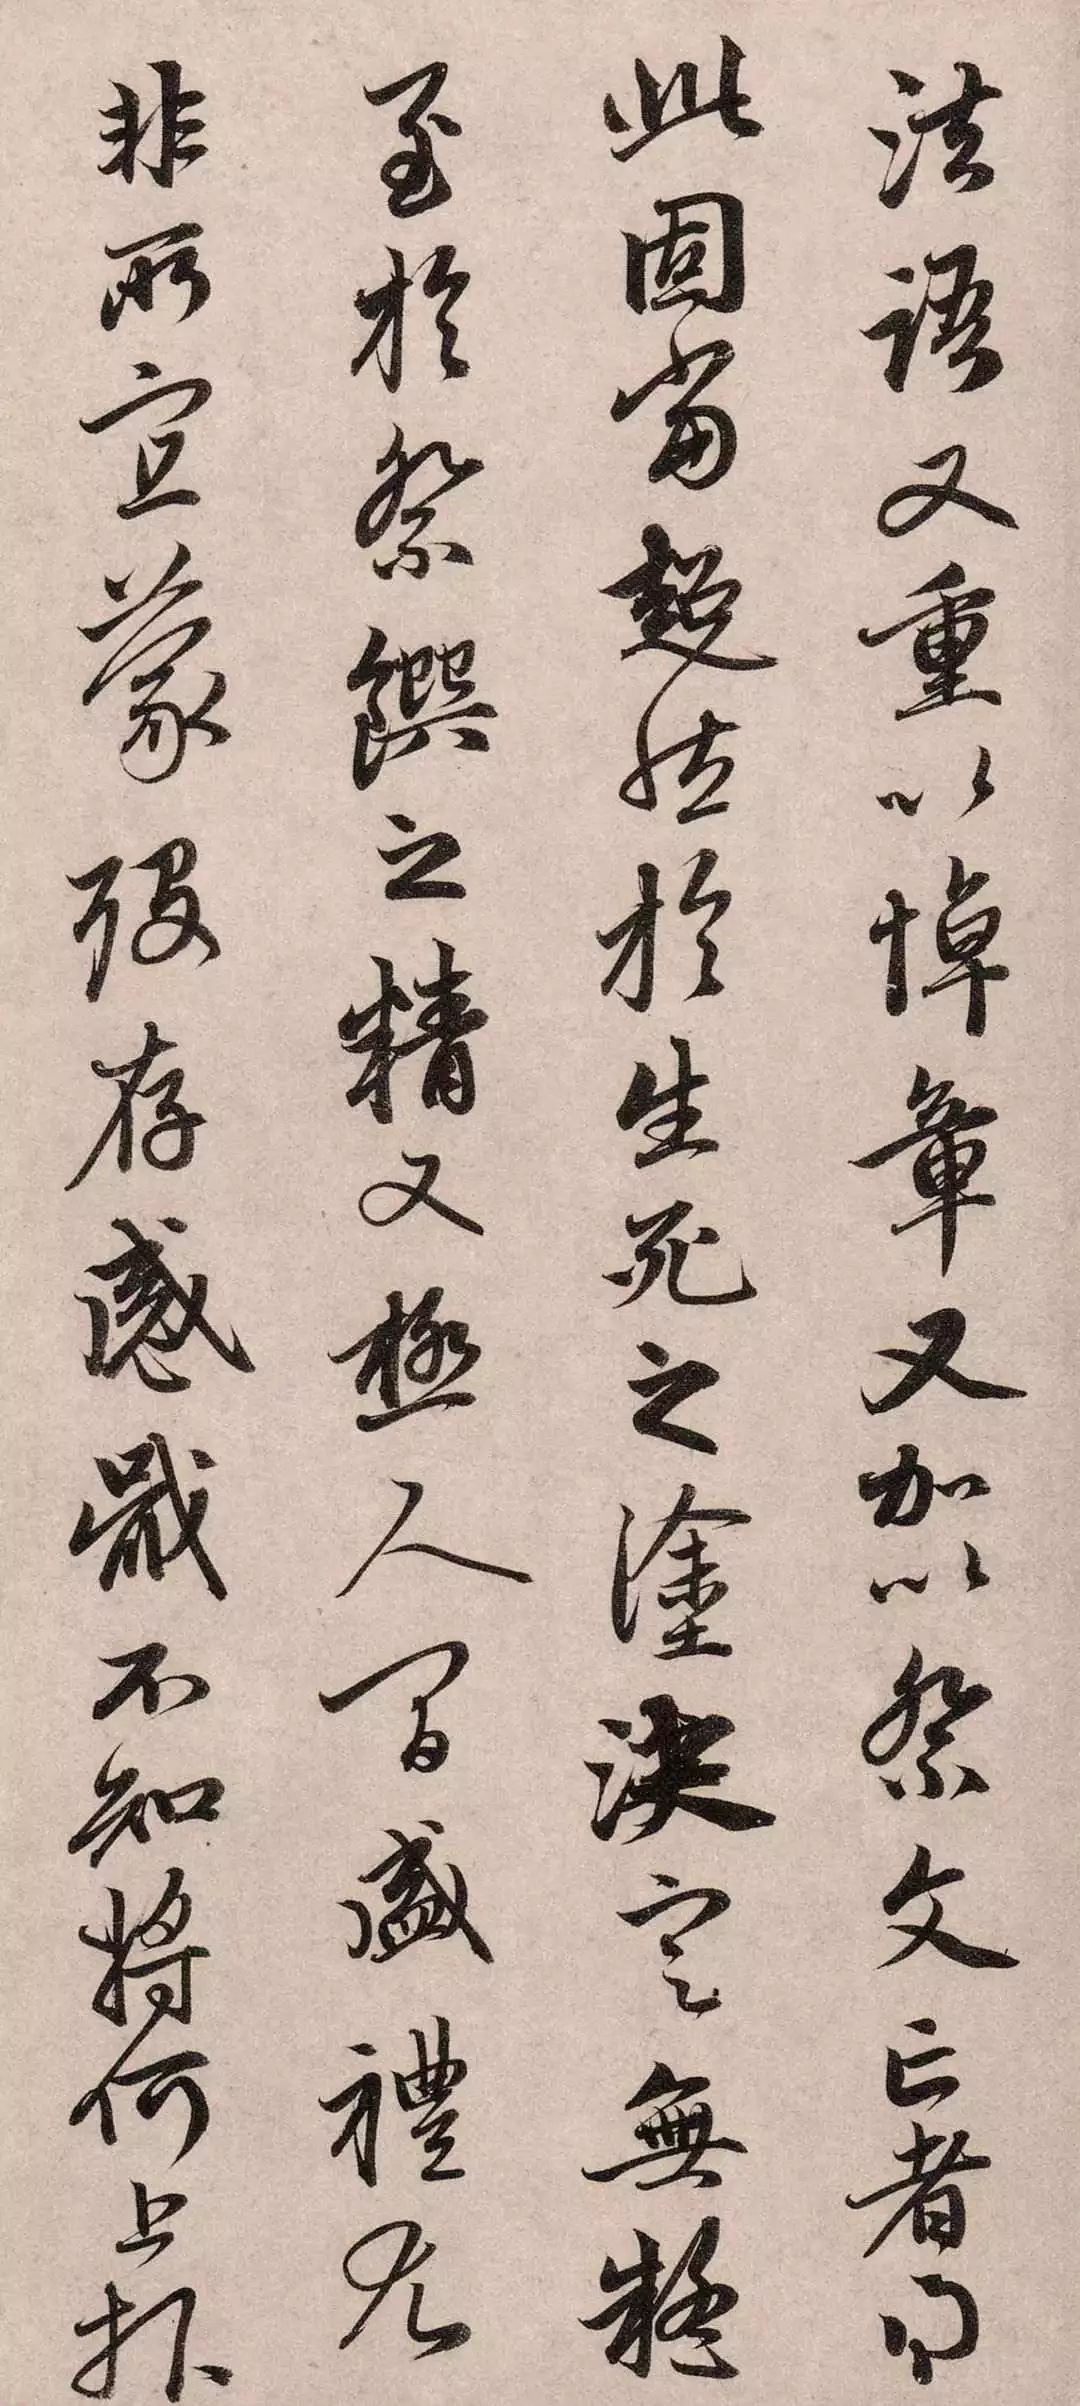 法語又重以悼章又加以祭文亡者得
此固當超然於生死之塗決定無疑
至於祭饌之精又極人間盛禮尤
非所宜蒙歿存感戢不知將何上報